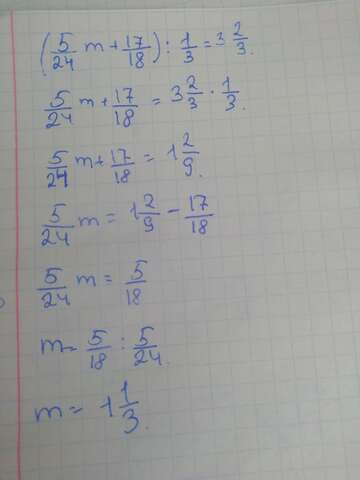 (5/24 m + 17/18) : 1/3 = 3 2/3.
5/24 m + 17/18 = 3 2/3 · 1/3.
5/24 m + 17/18 = 1 2/9.
5/24 m = 1 2/9 - 17/18
5/24 m = 5/18
m = 5/18 : 5/24.
m = 1 1/3.